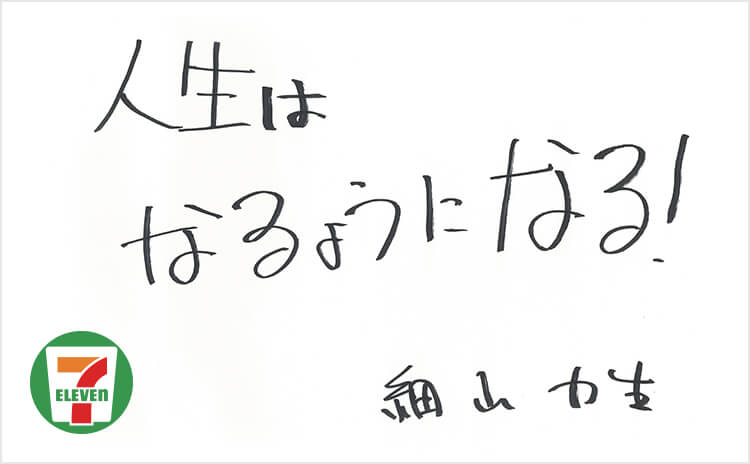 人生は
なるようになる!
細山 力生
7
ELEVEN